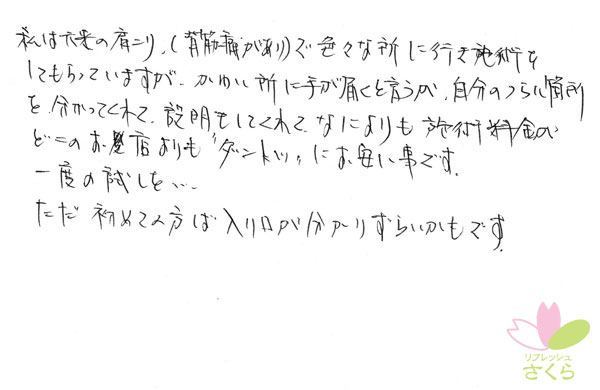 私は大変の肩こり、(背筋痛があり)で色々な所に行き施術を
してもらっていますが、かゆい所に手が届くと言うか、自分のつらい箇所
を分かってくれて、説明もしてくれて、なによりも施術料金が
どこのお店よりも“ダントツ”にお安い事です。
一度の試しを…
ただ初めての方は入り口が分かりずらいかもです。
リフレッシュ
さくら